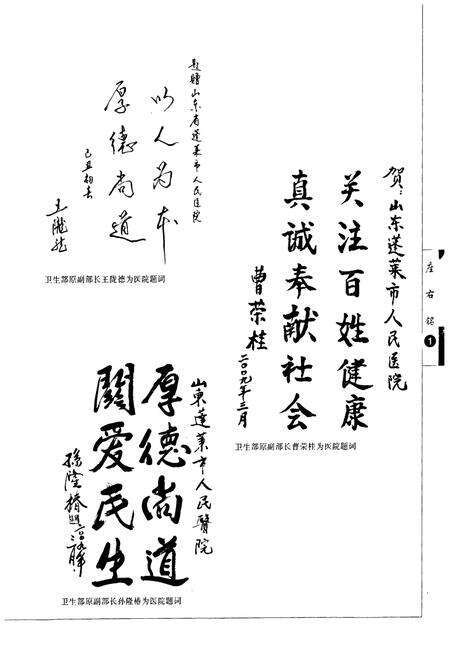 题赠山东省蓬莱市人民医院
以人为本
厚德尚道
己丑初春
王陇德
卫生部原副部长王陇德为医院题词
贺：山东蓬莱市人民医院
关注百姓健康
真诚奉献社会
曹荣桂
二〇〇九年三月
卫生部原副部长曹荣桂为医院题词
山東蓬莱市人民醫院
厚德尚道
關爱民生
孫隆椿题
卫生部原副部长孙隆椿为医院题词
座右铭
1